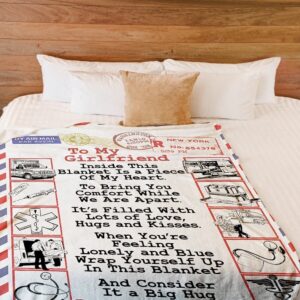 BY AIR MAIL
PAR AVION
NEW YORK
R
No. 654378
To My
Girlfriend
Inside This
Blanket Is a Piece
Of My Heart.
To Bring You
Comfort While
We Are Apart.
It's Filled With
Lots of Love,
Hugs and Kisses.
When You're
Feeling
Lonely and Blue
Wrap Yourself Up
In This Blanket
And Consider
It a Big Hug